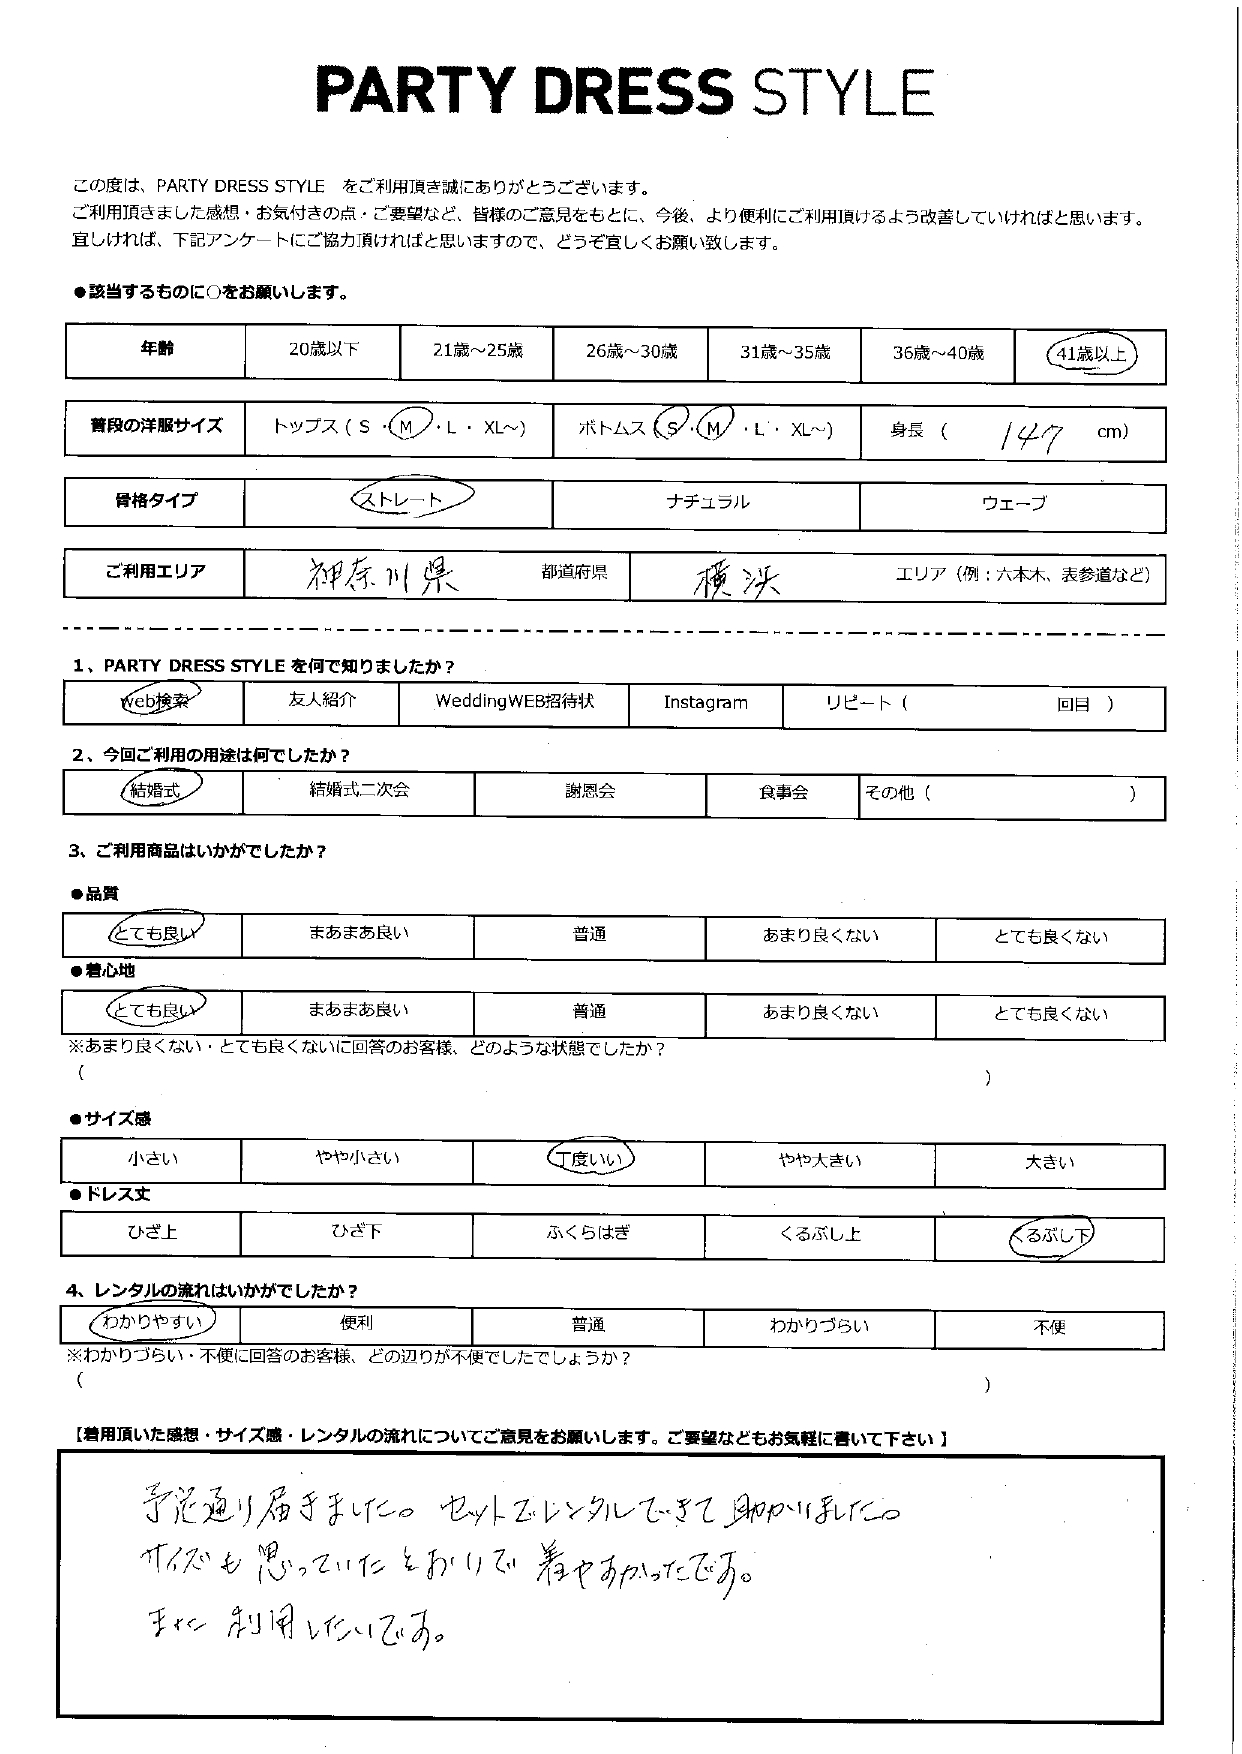 PARTY DRESS STYLE
この度は、PARTY DRESS STYLE をご利用頂き誠にありがとうございます。
ご利用頂きました感想・お気付きの点・ご要望など、皆様のご意見をもとに、今後、より便利にご利用頂けるよう改善していければと思います。
宜しければ、下記アンケートにご協力頂ければと思いますので、どうぞ宜しくお願い致します。
●該当するものに○をお願いします。
年齢 20歳以下 21歳～25歳 26歳～30歳 31歳～35歳 36歳～40歳 41歳以上
普段の洋服サイズ トップス ( S ・ M ・ L ・ XL～) ボトムス ( S ・ M ・ L ・ XL～) 身長 ( 147 cm)
骨格タイプ ストレート ナチュラル ウェーブ
ご利用エリア 神奈川県 都道府県 横浜 エリア（例：六本木、表参道など）
1、PARTY DRESS STYLE を何で知りましたか？
Web検索 友人紹介 WeddingWEB招待状 Instagram リピート ( 回目 )
2、今回ご利用の用途は何でしたか？
結婚式 結婚式二次会 謝恩会 食事会 その他 ( )
3、ご利用商品はいかがでしたか？
●品質
とても良い まあまあ良い 普通 あまり良くない とても良くない
●着心地
とても良い まあまあ良い 普通 あまり良くない とても良くない
※あまり良くない・とても良くないに回答のお客様、どのような状態でしたか？
( )
●サイズ感
小さい やや小さい 丁度いい やや大きい 大きい
●ドレス丈
ひざ上 ひざ下 ふくらはぎ くるぶし上 くるぶし下
4、レンタルの流れはいかがでしたか？
わかりやすい 便利 普通 わかりづらい 不便
※わかりづらい・不便に回答のお客様、どの辺りが不便でしたでしょうか？
( )
【着用頂いた感想・サイズ感・レンタルの流れについてご意見をお願いします。ご要望などもお気軽に書いて下さい 】
予定通り届きました。セットでレンタルできて助かりました。
サイズも思っていたとおりで着やすかったです。
また利用したいです。